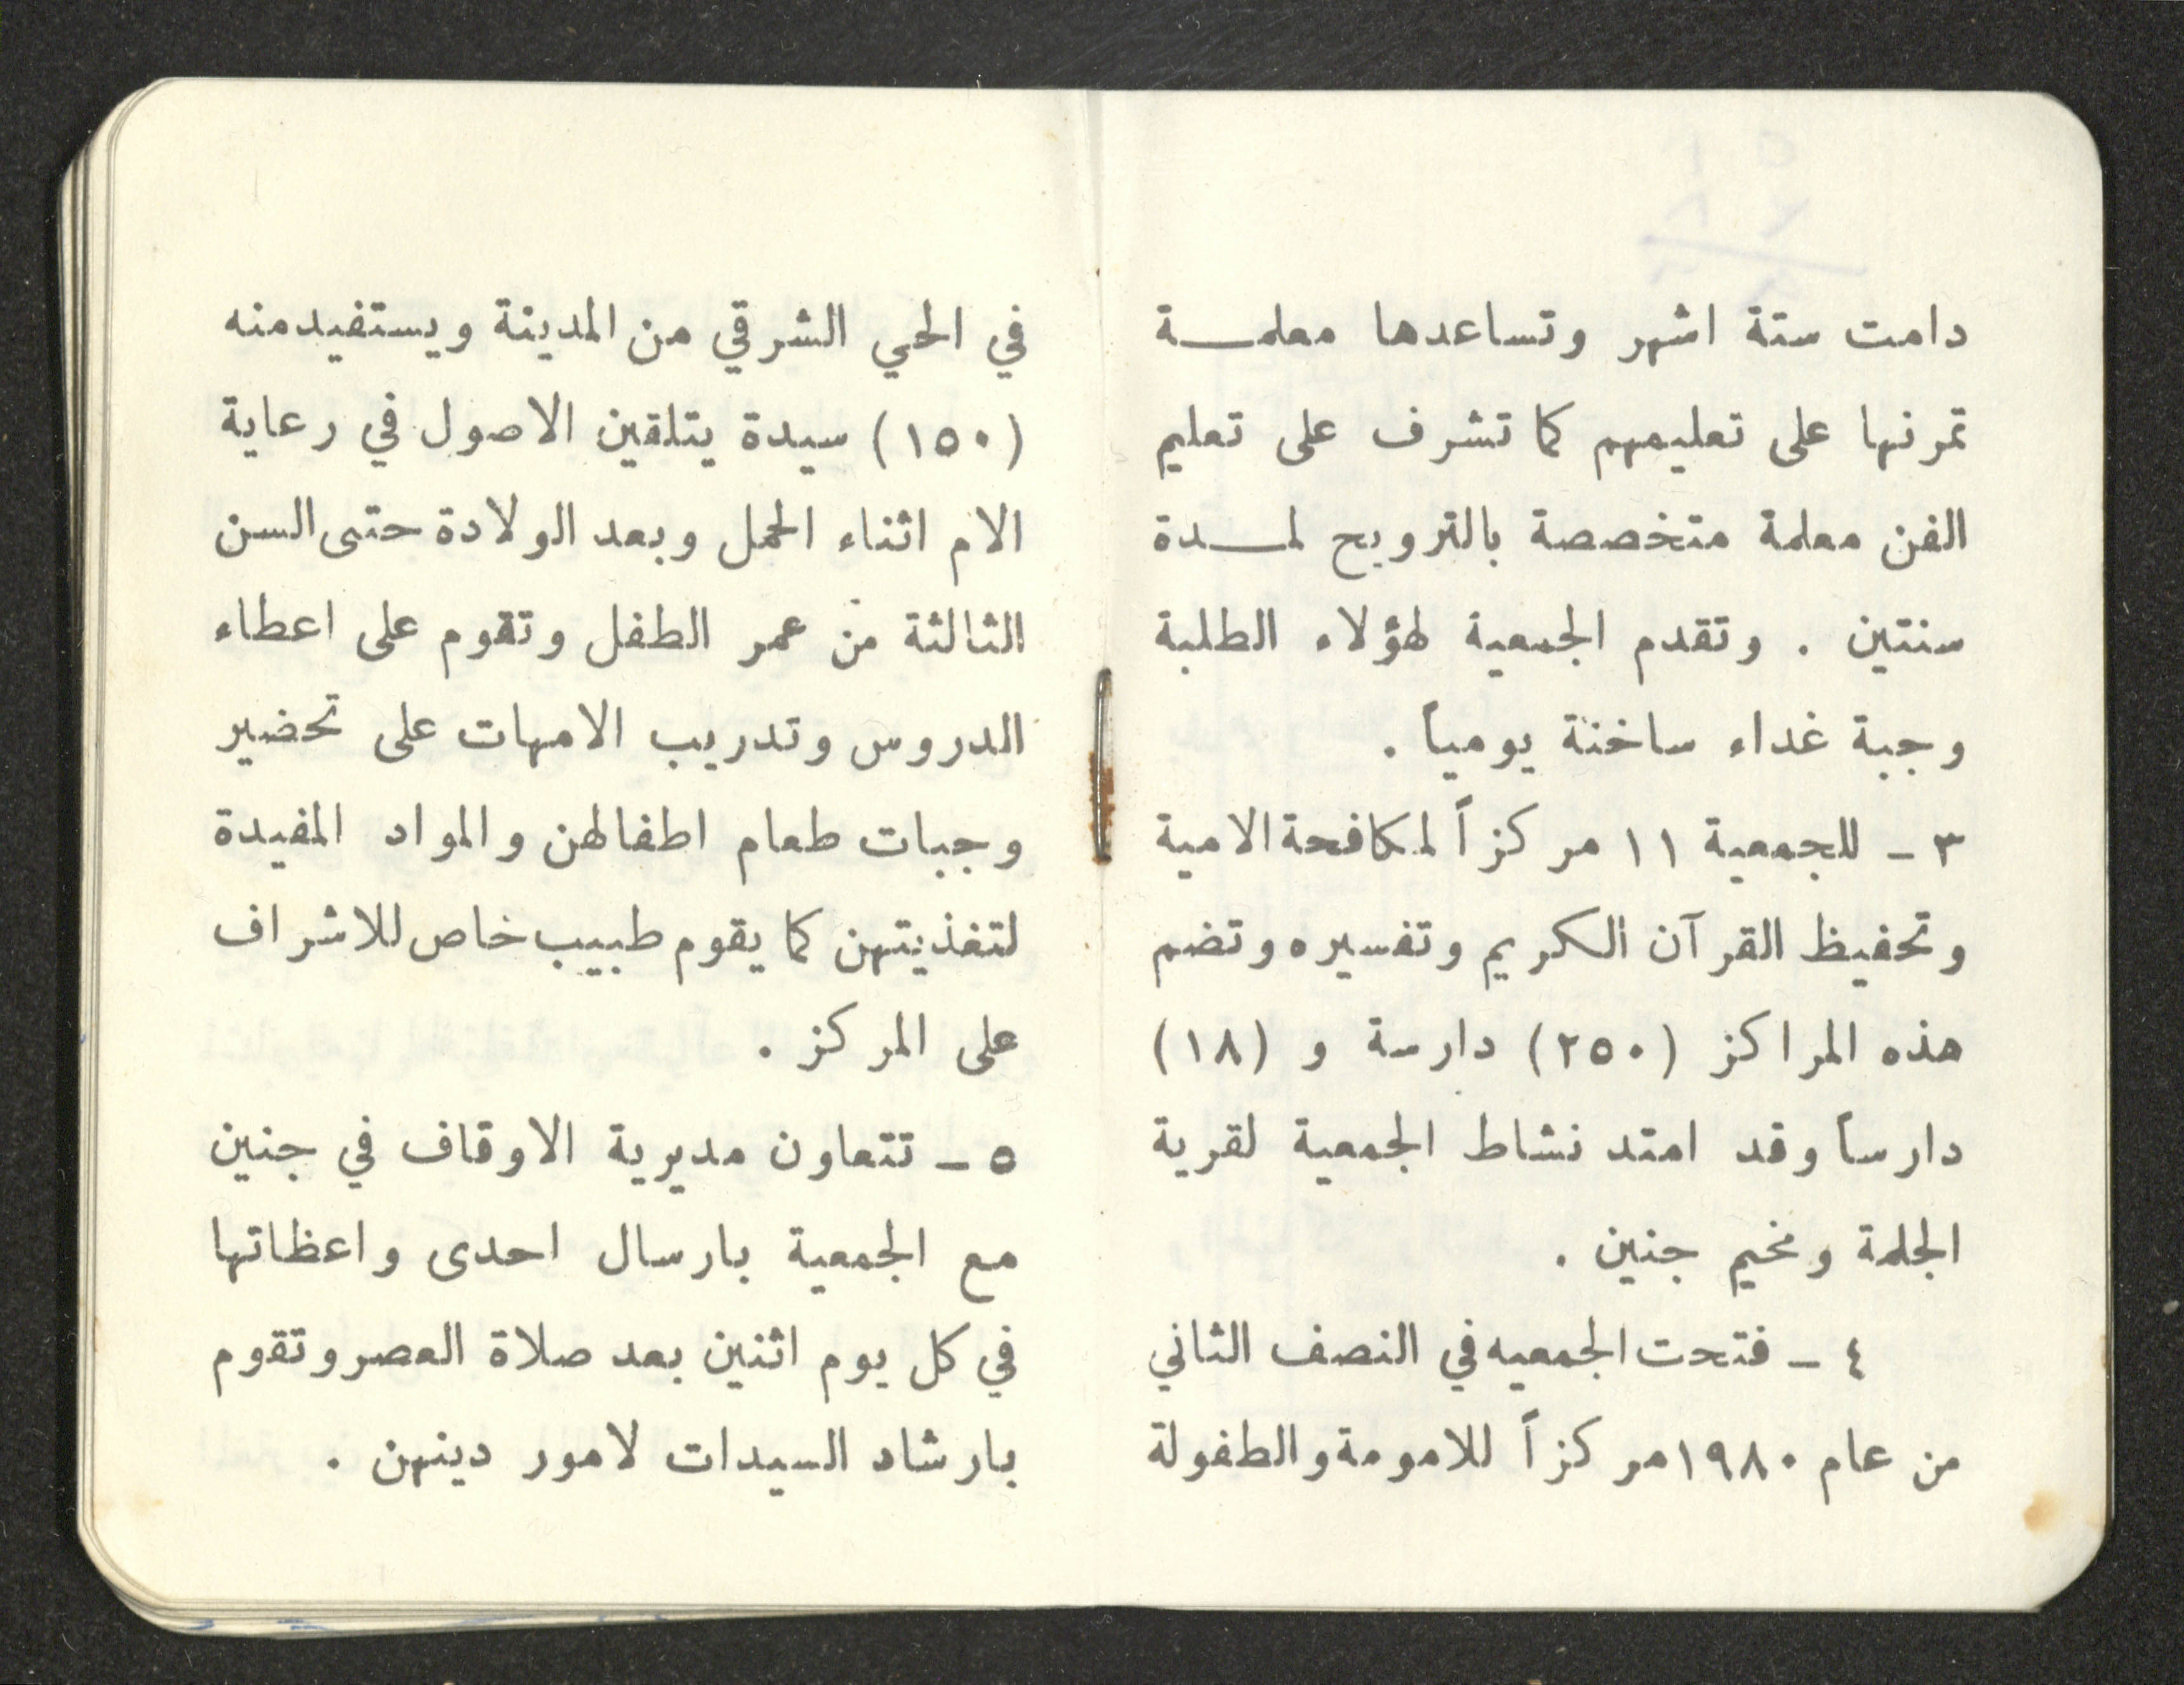 دامت ستة اشهر وتساعدها معلمة
تمرنها على تعليمهم كما تشرف على تعليم
الفن معلمة متخصصة بالترويح لمدة
سنتين . وتقدم الجمعية لهؤلاء الطلبة
وجبة غداء ساخنة يومياً .
٣ - للجمعية ١١ مركزاً لمكافحة الامية
وتحفيظ القرآن الكريم وتفسيره وتضم
هذه المراكز (٢٥٠) دارسة و (١٨)
دارساً وقد امتد نشاط الجمعية لقرية
الجلمة ومخيم جنين .
٤ - فتحت الجمعيه في النصف الثاني
من عام ١٩٨٠ مركزاً للامومة والطفولة
في الحي الشرقي من المدينة ويستفيد منه
(١٥٠) سيدة يتلقين الاصول في رعاية
الام اثناء الحمل وبعد الولادة حتى السن
الثالثة من عمر الطفل وتقوم على اعطاء
الدروس وتدريب الامهات على تحضير
وجبات طعام اطفالهن والمواد المفيدة
لتغذيتهن كما يقوم طبيب خاص للاشراف
على المركز .
٥ - تتعاون مديرية الاوقاف في جنين
مع الجمعية بارسال احدى واعظاتها
في كل يوم اثنين بعد صلاة العصر وتقوم
بارشاد السيدات لامور دينهن .